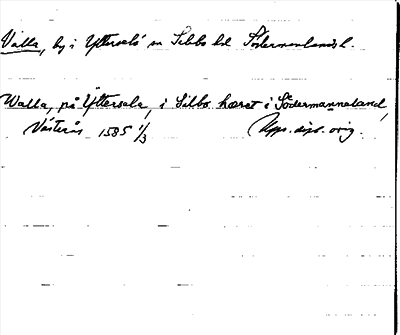 Valla, by i Ytterselö sn Selebo hd Södermanlands l.
Walla, på Yttersela, i Silbo häret i Södermannaland,
Västerås 1585 1/3 Upps. dipl. orig.